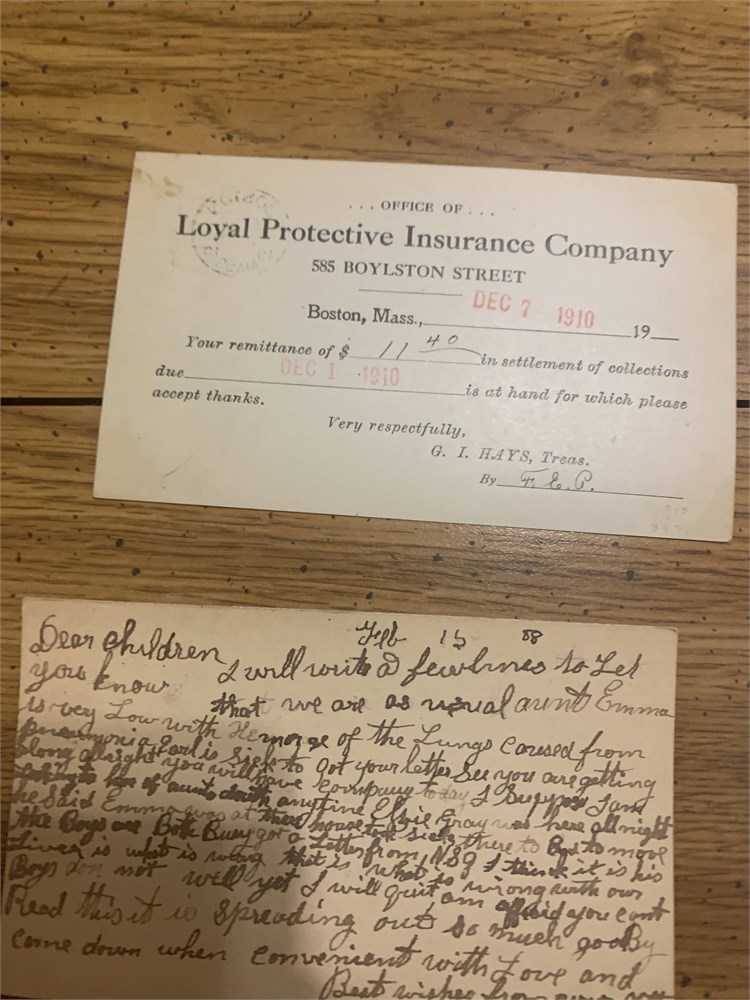 ... OFFICE OF ...
Loyal Protective Insurance Company
585 BOYLSTON STREET
Boston, Mass., DEC 7 1910 19
Your remittance of $ 11 40 in settlement of collections
due DEC 1 1910 is at hand for which please
accept thanks.
Very respectfully,
G. I. HAYS, Treas.
By F. E. P.
Feb 15 88
Dear children I will write a few lines to Let
you know that we are as usual aunt Emma
is very Low with of the Lungs caused from
pneumonia Earl is sick to got your letter See you are getting
along allright you will have company today I Suppose I am
to of aunt death anytime Elsie Gray was here all night
he Said Emma was at there house sick there to to move
the Boys are Both Busy got a Letter from I think it is his
Liver is what is wrong that is what is wrong with our
Boys not well yet I will quit am afraid you cant
Read this it is spreading out so much good By
come down when convenient with Love and
Best wishes from